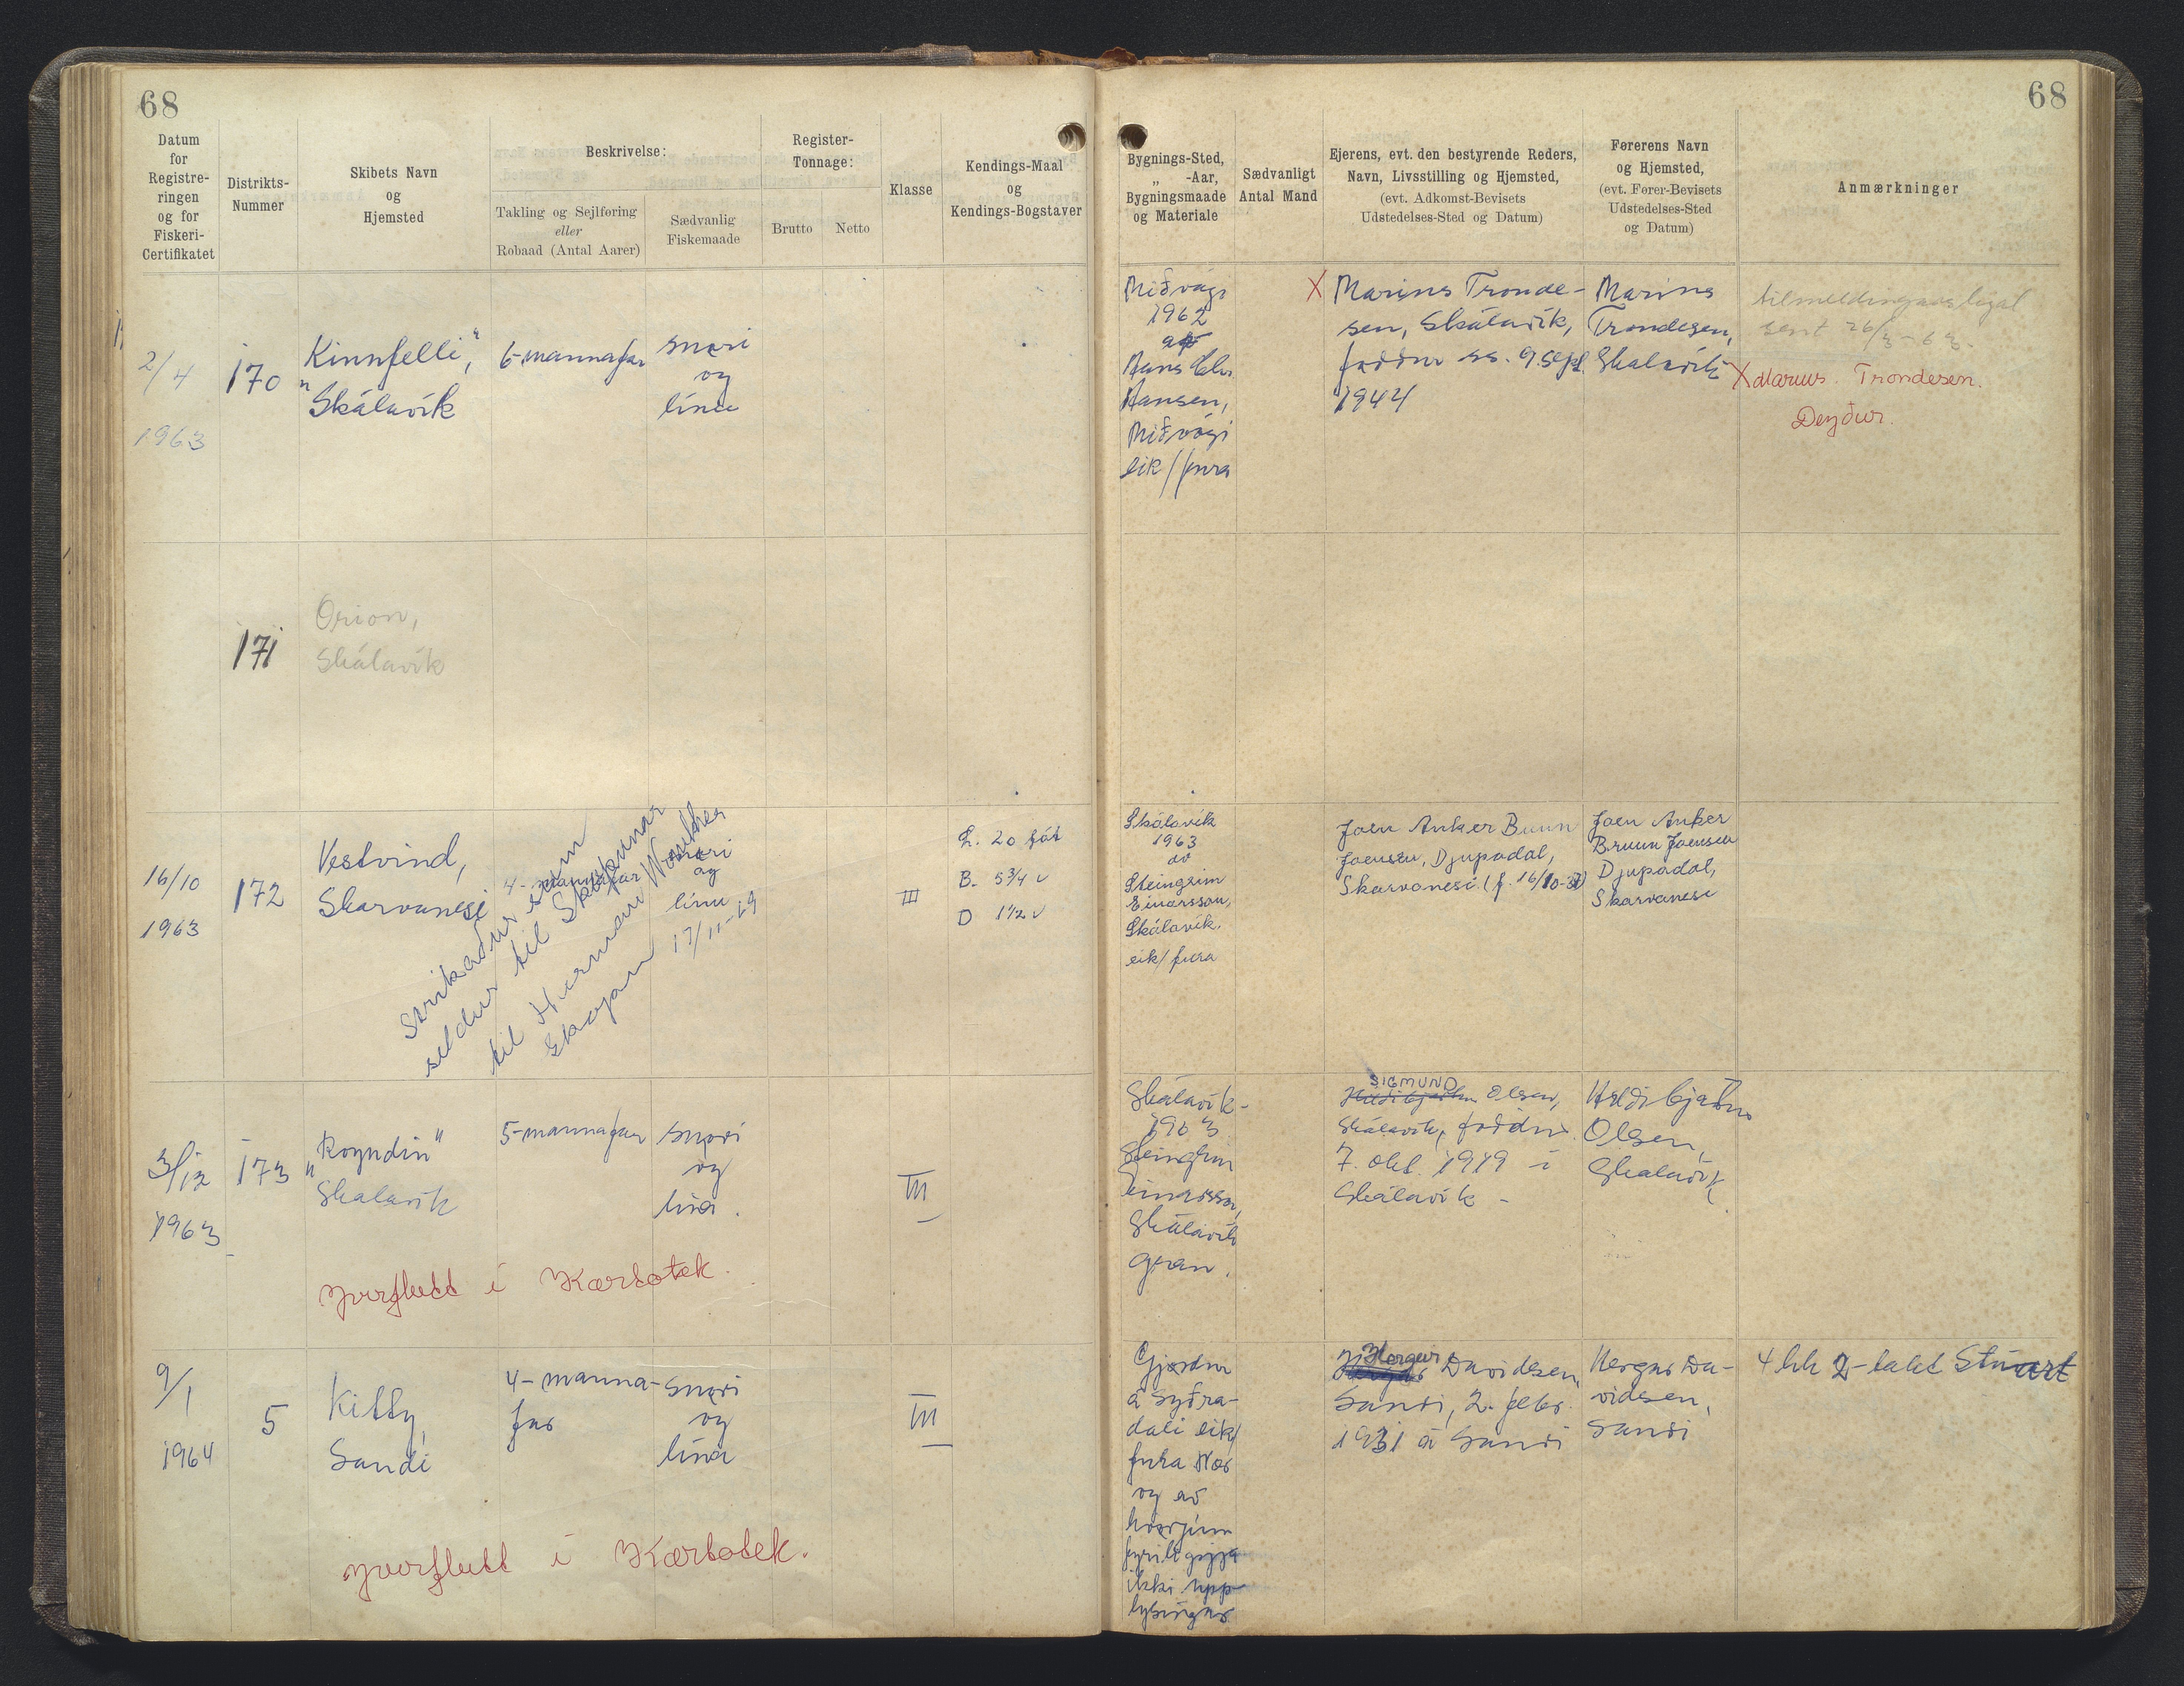 68
68
Datum
for
Registre-
ringen
og for
Fiskeri-
Certifikatet
Distrikts-
Nummer
Skibets Navn
og
Hjemsted
Beskrivelse:
Takling og Sejlføring
eller
Robaad (Antal Aarer)
Sædvanlig
Fiskemaade
Register-
Tonnage:
Brutto
Netto
Klasse
Kendings-Maal
og
Kendings-Bogstaver
Bygnings-Sted,
„ -Aar,
Bygningsmaade
og Materiale
Sædvanligt
Antal Mand
Ejerens, evt. den bestyrende Reders,
Navn, Livsstilling og Hjemsted,
(evt. Adkomst-Bevisets
Udstedelses-Sted og Datum)
Førerens Navn
og Hjemsted,
(evt. Fører-Bevisets
Udstedelses-Sted
og Datum)
Anmærkninger
2/4
1963
170
„Kinnfelli",
Skálavík
6-mannafar
snøri
og
línu
Miðvági
1962
af
Hans
Hansen,
Miðvági
eik/fura
X Marius Tronde-
sen, Skálavík,
føddur ss. 9. sept.
1944
Marius
Trondesen,
Skálavík
sent 26/3-63.
X Marius. Trondesen.
Deyður.
171
Orion,
Skálavík
16/10
1963
172
Vestvind,
Skarvanesi
4-mannafar
snøri
og
línu
17/11-69
strikaður
seldur til Skopunar
til Hermann
III
L. 20 fót
B. 5 3/4 "
D 1 1/2 "
Skálavík
1963
av
Steingrim
Einarsson,
Skálavík.
eik/fura
Joen Anker Bruun
Joensen, Djupadal,
Skarvanesi (f. 16/10-37)
Joen Anker
Bruun Joensen
Djupadal,
Skarvanesi
3/12
1963
173
„Royndin"
Skálavík
5-mannafar
snøri
og
línu.
III
Skálavík -
1963
Steingrim
Einarsson,
Skálavík
gran.
SIGMUND
Hildibjartur Olsen,
Skálavík, føddur
7. okt. 1919 í
Skálavík -
Hildibjartur
Olsen,
Skálavík
yvirflutt í Kartotek.
9/1
1964
5
Kitty,
Sandi
4-manna-
far
snøri
og
línu
III
Gjørdur
á Syðra-
dali eik/
fura Nær
og av
hvørjum
fyriliggja
ikki upp-
lýsingar
Hergeir
Davidsen,
Sandi, 2. febr.
1931 á Sandi
Hergeir Da-
vidsen,
Sandi
4 hk 2-takt Stuart
yvirflutt í Kartotek.